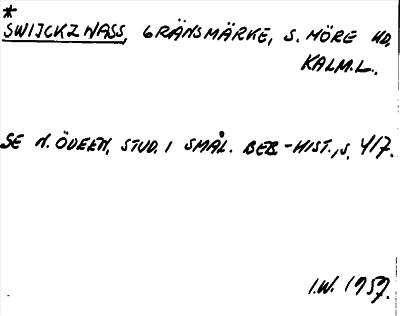 *
SWIJCKZ NASS, GRÄNSMÄRKE, S. MÖRE HD.
KALM.L.
SE N. ÖDEEN, STUD. I SMÅL. BEB.-HIST., S. 417.
I.W. 1957.